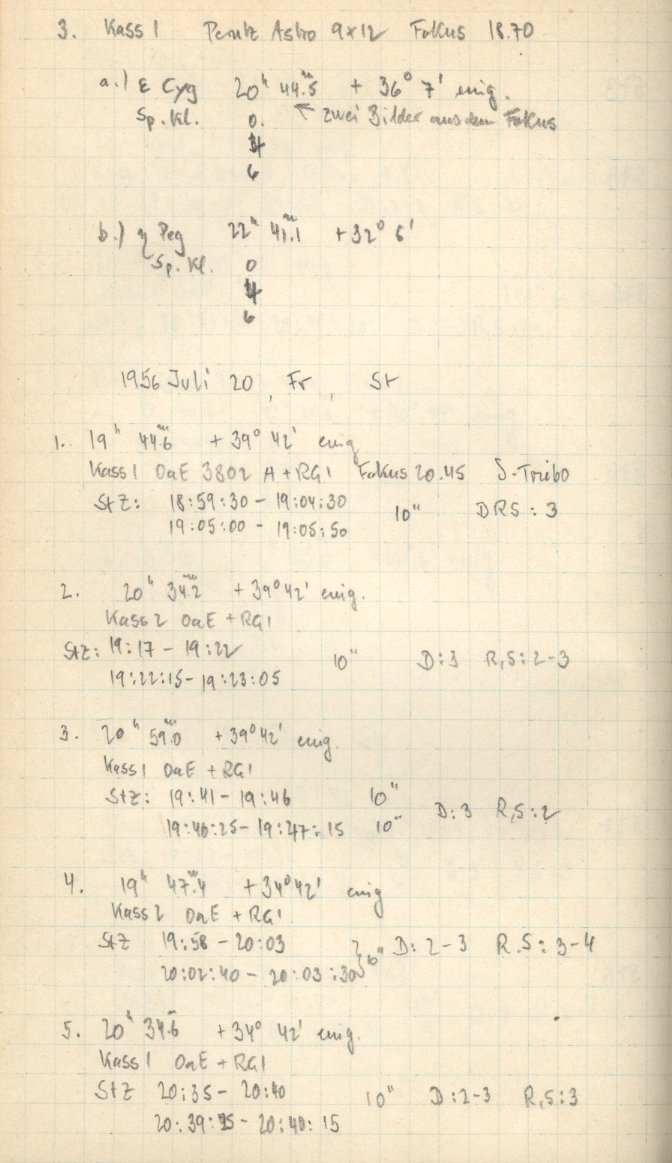 3. Kass 1 Perutz Astro 9x12 Fokus 18.70
a.) ε Cyg 20h 44.m5 + 36° 7' einig.
Sp. Kl. 0. ↖ zwei Bilder aus dem Fokus
4
6
b.) η Peg 22h 41.m1 + 32° 6'
Sp. Kl. 0
4
6
1956 Juli 20, Fr, St
1. 19h 44.m6 + 39° 42' einig
Kass 1 OaE 3802 A + RG1 Fokus 20.45 S-Tribo
StZ: 18:59:30 - 19:04:30 10" DRS: 3
19:05:00 - 19:05:50
2. 20h 34.m2 + 39° 42' einig.
Kass 2 OaE + RG1
StZ: 19:17 - 19:22 10" D:3 R,S: 2-3
19:22:15 - 19:23:05
3. 20h 59.m0 + 39° 42' einig.
Kass 1 OaE + RG1
StZ: 19:41 - 19:46 10" D:3 R,S:2
19:46:25 - 19:47:15 10"
4. 19h 47.m4 + 34° 42' einig
Kass 2 OaE + RG1
StZ 19:58 - 20:03 } 10" D: 2-3 R.S: 3-4
20:02:40 - 20:03:30
5. 20h 34.m6 + 34° 42' einig.
Kass 1 OaE + RG1
StZ 20:35 - 20:40 10" D:2-3 R,S:3
20:39:25 - 20:40:15